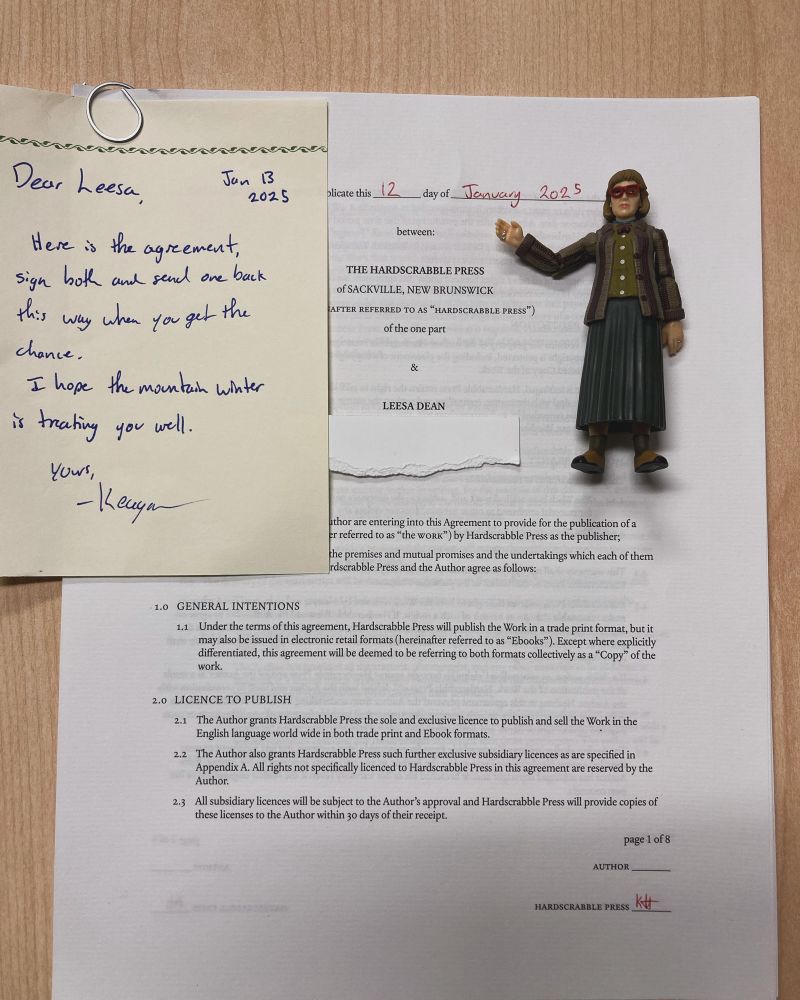 Dear Leesa,
Jan 13
2025
Here is the agreement,
sign both and send one back
this way when you get the
chance.
I hope the mountain winter
is treating you well.
Yours,
–Keagan
plicate this 12 day of January 2025
between:
THE HARDSCRABBLE PRESS
of SACKVILLE, NEW BRUNSWICK
AFTER REFERRED TO AS “HARDSCRABBLE PRESS”)
of the one part
&
LEESA DEAN
uthor are entering into this Agreement to provide for the publication of a
er referred to as “THE WORK”) by Hardscrabble Press as the publisher;
the premises and mutual promises and the undertakings which each of them
rdscrabble Press and the Author agree as follows:
1.0 GENERAL INTENTIONS
1.1 Under the terms of this agreement, Hardscrabble Press will publish the Work in a trade print format, but it
may also be issued in electronic retail formats (hereinafter referred to as “Ebooks”). Except where explicitly
differentiated, this agreement will be deemed to be referring to both formats collectively as a “Copy” of the
work.
2.0 LICENCE TO PUBLISH
2.1 The Author grants Hardscrabble Press the sole and exclusive licence to publish and sell the Work in the
English language world wide in both trade print and Ebook formats.
2.2 The Author also grants Hardscrabble Press such further exclusive subsidiary licences as are specified in
Appendix A. All rights not specifically licenced to Hardscrabble Press in this agreement are reserved by the
Author.
2.3 All subsidiary licences will be subject to the Author’s approval and Hardscrabble Press will provide copies of
these licenses to the Author within 30 days of their receipt.
page 1 of 8
AUTHOR
HARDSCRABBLE PRESS KH